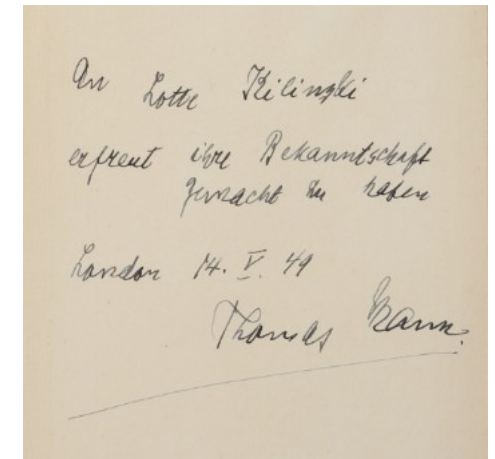 An Lotte Kilinski
erfreut ihre Bekanntschaft
gemacht zu haben
London 14. V. 49
Thomas Mann.